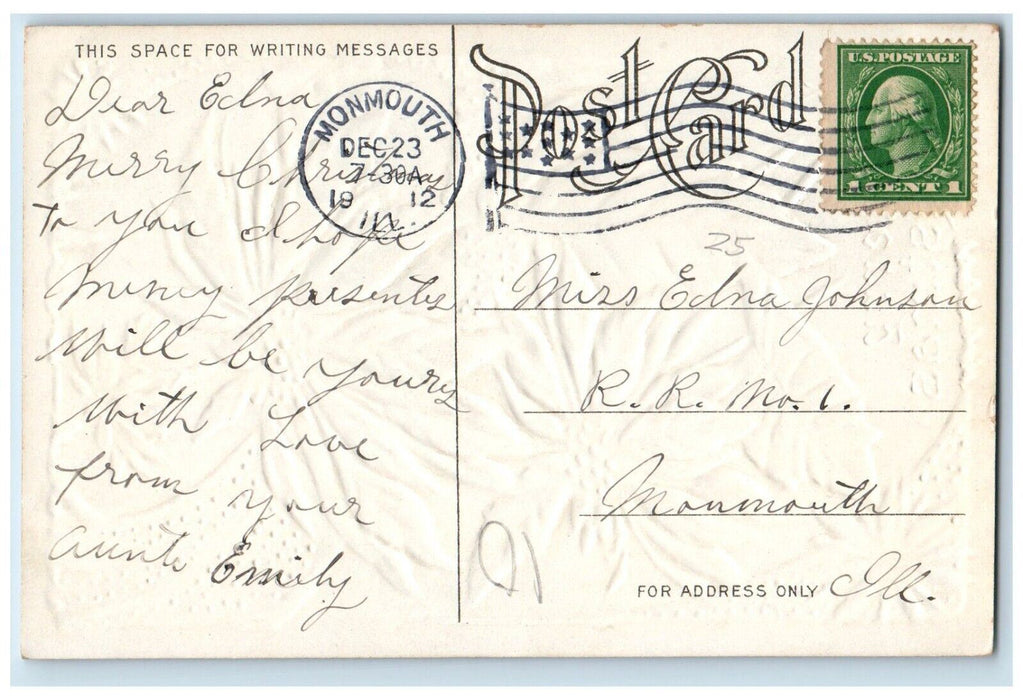 THIS SPACE FOR WRITING MESSAGES
Dear Edna
Merry Christmas
to you I hope
meney presentes
Will be yours
With Love
from your
aunte Emily
Post Card
MONMOUTH
DEC 23
7-30A
19 12
ILL.
U.S. POSTAGE
1 CENT 1
25
Miss Edna Johnson
R. R. No. 1.
Monmouth
Ill.
FOR ADDRESS ONLY